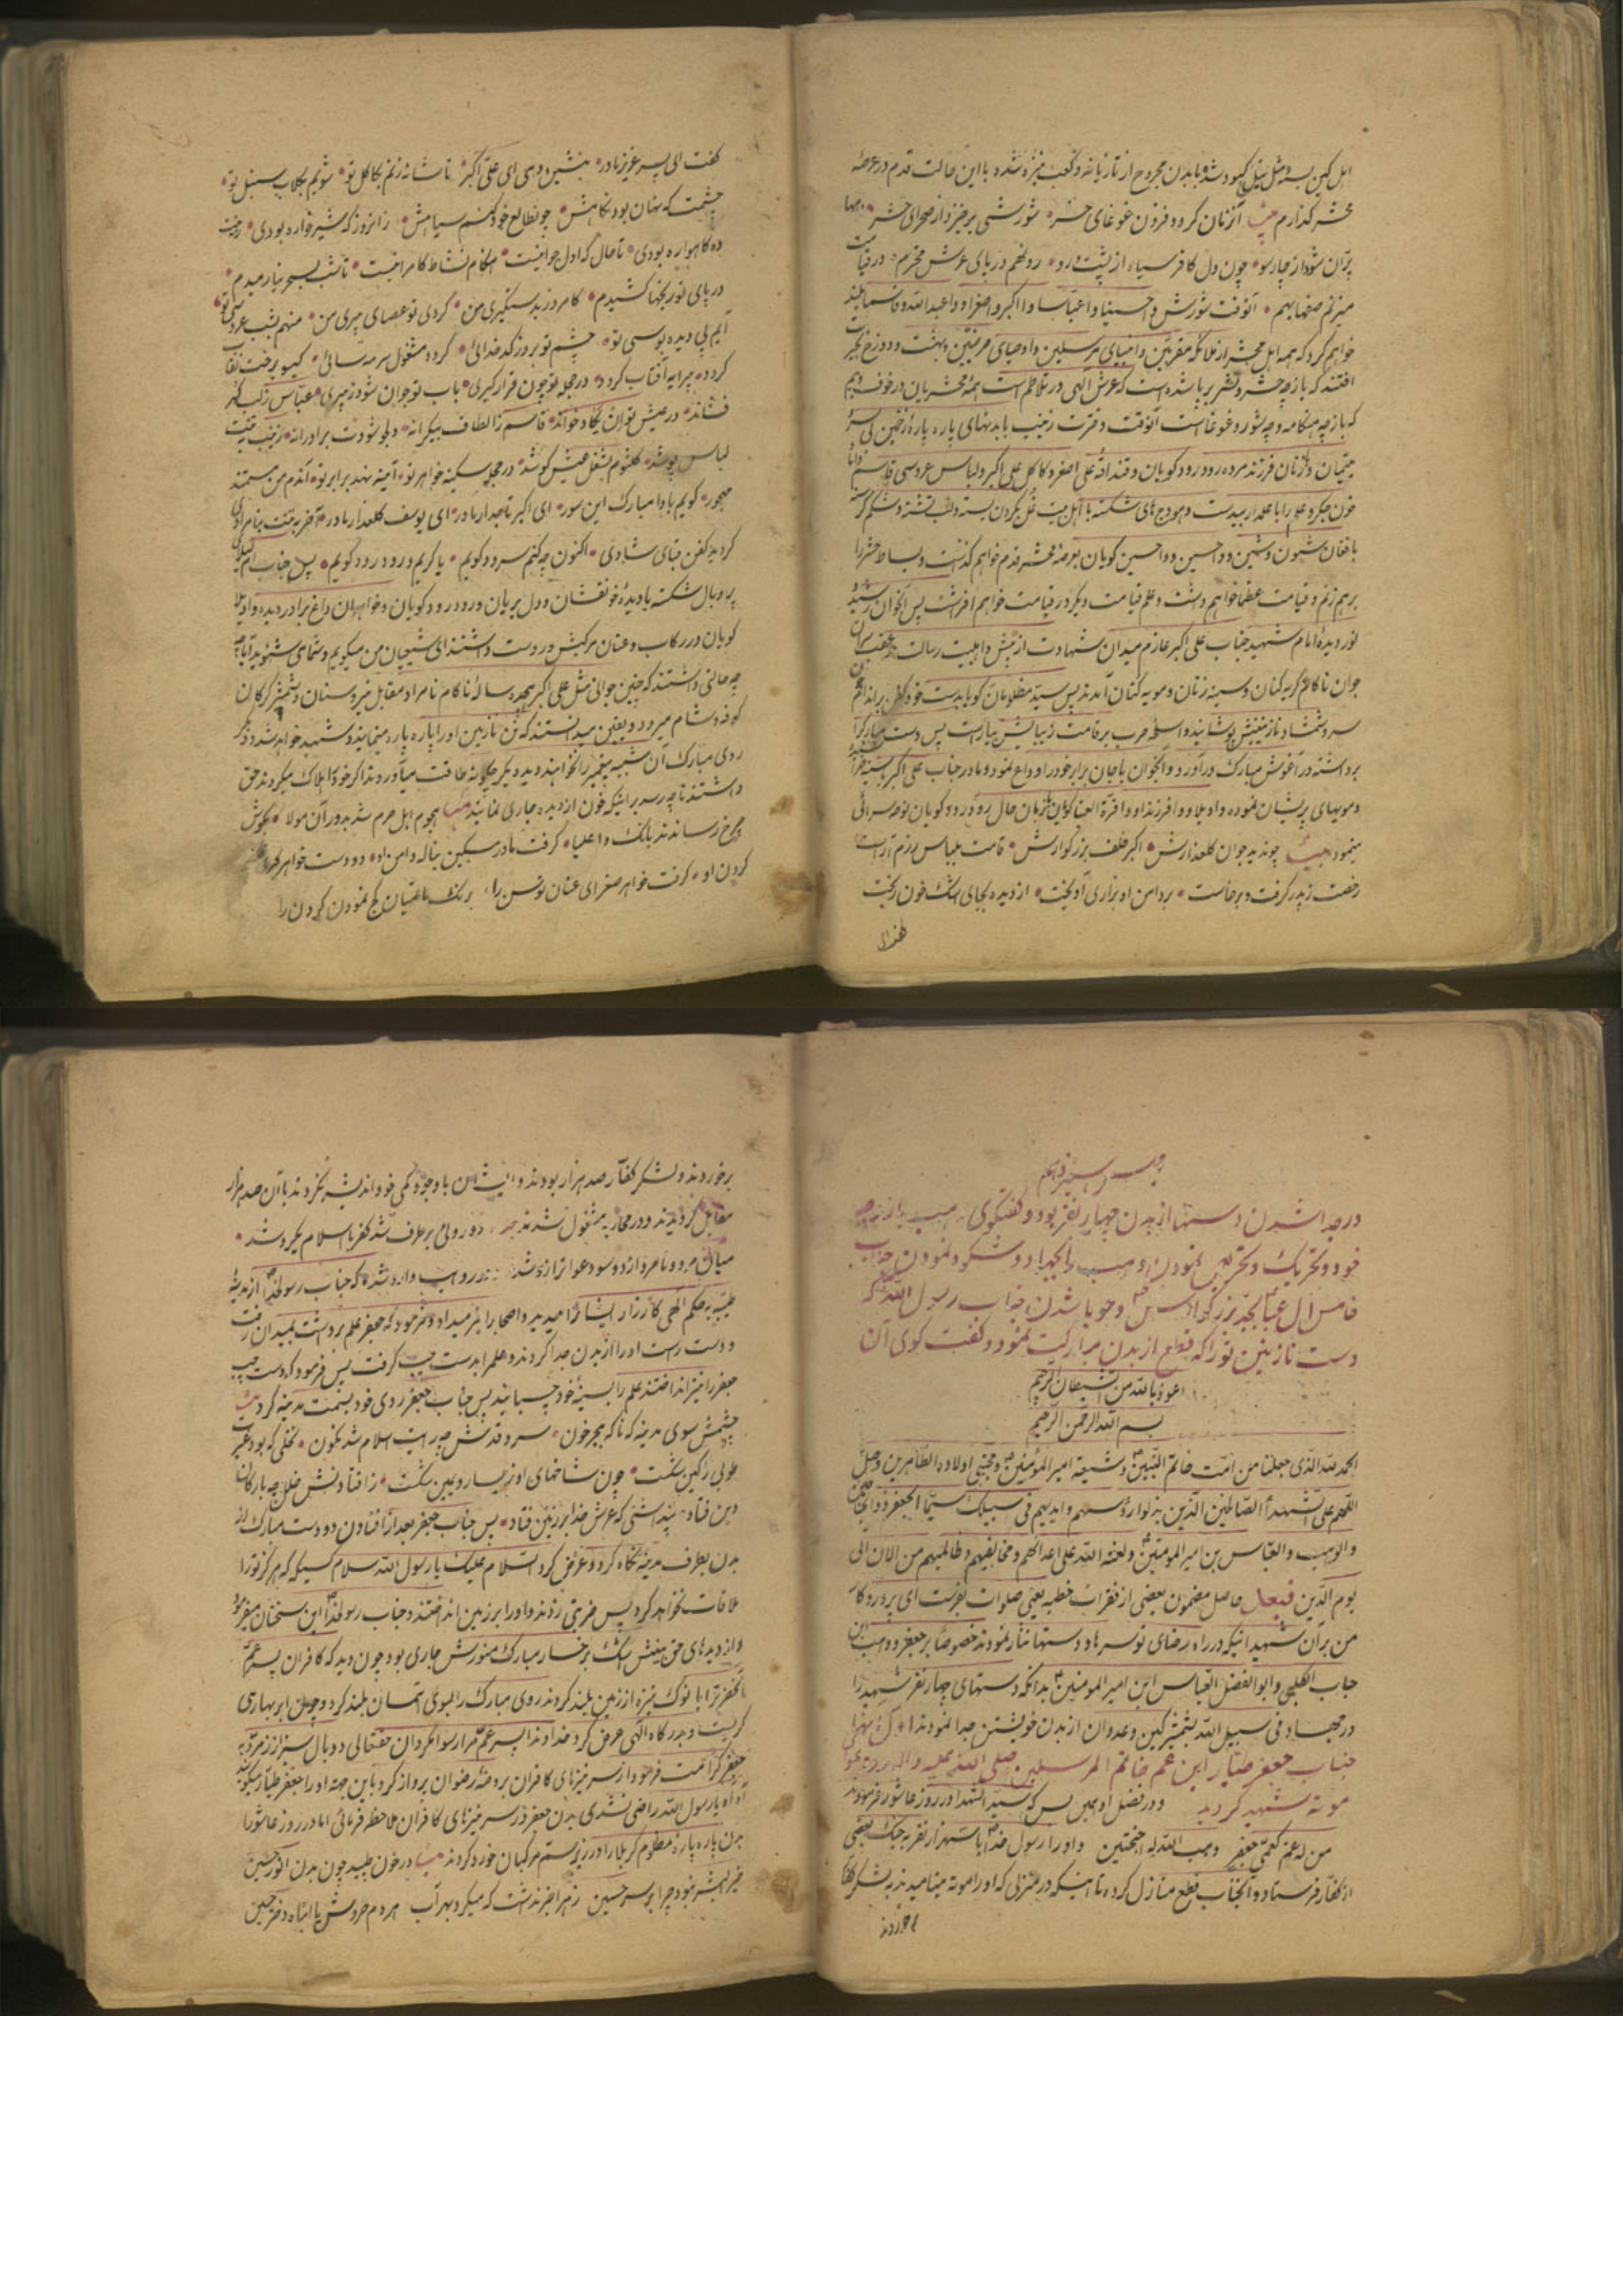 اهل کین بسته و مثل نیل کبود شده و بابدن مجروح از تازیانه و کعب نیزه شده با این حالت قدم در عرصهٔ
محشر گذارم بیت آنزمان گردد فزون غوغای حشر شورشی برخیزد از صحرای حشر
پران شود از چارسو چون دل کافر سیاه از پشت و رو رو نهم در پای عرش محترم در قیامت
میزنم صفها بهم آنوقت شورش واحسینا واعباسا وااکبر واصغرا و واعبداللّه و قاسما بلند
خواهم کرد که همه اهل محشر از ملائکه مقربین و انبیای مرسلین و اوصیای مرضیین و بهشت و دوزخ بحیرت
افتند که باز چه حشر و نشر برپا شده است که عرش الهی در تلاطم است همهٔ محشریان در خوف و بیم
که باز چه هنگامه و چه شور و غوغا است آنوقت دخترت زینب با بدنهای پاره پاره از زمین بی سر
یتیمان و زنان فرزند مرده رود رود گویان و قنداقهٔ علی اصغر و کاکل علی اکبر و لباس عروسی قاسم
خون جگر و علم را با علمدار بیدست و هودج‌های شکسته با اهل بیت غل بگردن بسته و لب تشنه و شکم گرسنه
با فغان شیون و شین و واحسین وواحسین گویان بعرصهٔ محشر قدم خواهم گذاشت و بساط حشر را
برهم زنم و قیامت عظما خواهم داشت و علم قیامت دیگر در قیامت خواهم افراشت پس آنجوان رشید و
نور دیدهٔ امام شهید جناب علی اکبر عازم میدان شهادت از پیش و اهلبیت رسالت در عقب سر آن
جوان ناکام گریه کنان و سینه زنان و مویه کنان آمدند پس سید مظلومان گویا بدست خود کفن بر اندام
سرو شمشاد نازنینش پوشانید و اسلحهٔ حرب بر قامت زیبایش بیاراست پس دست مبارک را
برداشته در آغوش مبارک درآورد و آنجوان باجان برابر خود را وداع نمود و مادر جناب علی اکبر با سینه خراشیده
و مویهای پریشان نموده و اویلا و وافرزندا و واقرة العینا گویان بزبان حال رود رود گویان نوحه سرائی
مینمود بیت چو ندید جوان گلعذارش اکبر خلف بزرگوارش قامت بلباس رزم آراست
رخصت ز پدر گرفت و برخاست بر دامن او بزاری آویخت از دیده بجای اشک خون ریخت
گفت ای
گفت ای پسر عزیز مادر بنشین دمی ای علی اکبر تا شانه زنم بکاکل تو شویم بگلاب سنبل تو
چشمت که نهان بود نگاهش چونطالع خود کنم سیاهش زانروز که شیرخواره بودی زینت
ده گاهواره بودی تا حال که اول جوانیست هنگام نشاط کامرانیست تا شب بسحر نیارمیدم
در پای تو رنجها کشیدم کامروز بدستگیری من گردی تو عصای پیری من منهم بشب عروسی تو
آیم پی دیده بوسی تو چشم تو بروز کدخدائی گردد مشغول سرمه سائی گیسو برخت نقاب
گردد پیرایه آفتاب گردد در حجله تو چون قرار گیری باب تو جوان شود ز پیری عباس زلب گهر
فشاند در عیش تو ان یکاد خواند قاسم ز الطاف بیکرانه دلجو شودت برادرانه زینب بتنت
لباس پوشد کلثوم بشغل عیش کوشد در حجله سکینه خواهر تو آئینه نهد برابر تو آندم من مستمند
مهجور گویم بادا مبارک این سور ای اکبر تاجدار مادر ای یوسف گلعذار مادر آخر بتنت بنامرادی
گردید کفن قبای شادی اکنون چه کنم سرود گویم یا گریم و رود رود گویم پس جناب ام لیلای
پر و بال شکسته بادیدهٔ خونفشان و دل بریان و رود رود گویان و خواهران داغ برادر دیده واویلا
گویان در رکاب و عنان مرکبش در دست داشتند ای شیعیان من میگویم و شمای شنوید آیا
چه حالتی داشتند که چنین جوانی مثل علی اکبر هجده ساله ناکام نامراد مقابل تیر و سنان و شمشیر گرگان
کوفه و شام میرود و یقین میدانستند که تن نازنین او را پاره پاره مینمایند و شهید خواهد شد و دیگر
روی مبارک آن شبیه پیغمبر را نخواهند دید دیگر چگونه طاقت میآوردند اگر خود را هلاک میکردند حق
داشتند تا چه رسد براینکه خون از دیده جاری نمایند بیت هجوم اهل حرم شد بدور آن مولا بگوش
چرخ رساندند بانگ واعلیا گرفت مادر مسکین بناله دامن او دو دست خواهر
گردن او گرفت خواهر صغرای عنان توسن را برنگ ماتمیان کج نمود آن گردن را
مجلس سیزدهم
در جدا شدن دستها از بدن چهار نفر بود و گفتگوی وهب با زوجهٔ
خود و تحریک و تحریص نمودن او وهب را بجهاد و شکوه نمودن جناب
خامس آل عبا بجد بزرگوارش و جویا شدن جناب رسول اللّه که
دست نازنین تو را که قطع از بدن مبارکت نمود و گفت گوی آن
اعوذ باللّه من الشیطان الرجیم
بسم اللّه الرحمن الرحیم
الحمد للّه الذی جعلنا من امت خاتم النبیین و شیعته امیر المؤمنین و محبی اولاده الطاهرین وصل
اللهم علی الشهداء الصالحین الذین بذلوا رؤسهم و ایدیهم فی سبیلک سیما الجعفر ذو الجناحین
والوهب والعباس بن امیر المومنین و لعنة اللّه علی اعدائهم و مخالفیهم و ظالمیهم من الان الی
یوم الدین فبعد حاصل مضمون بعضی از فقرات خطبه یعنی صلوات بفرست ای پروردگار
من بر آن شهیدانیکه در راه رضای تو سرها و دستها نثار نمودند خصوصاً بر جعفر و وهب ابن
جناب الکلبی و ابوالفضل العباس ابن امیر المومنین بدانکه دستهای چهار نفر شهید را
در جهاد و فی سبیل اللّه بشمشیر کین و عدوان از بدن خویشتن جدا نمودند
جناب جعفر طیار ابن عم خاتم المرسلین صلی اللّه علیه واله در جنگ
موته شهید گردید و در فضل او همین بس که سید الشهدا در روز عاشورا فرمودند
من له عم کعمی جعفر وهب اللّه له اجنحتین و او را رسول خدا با سه هزار نفر به جنگ بعضی
از کفار فرستاد و آنجناب قطع منازل کرده تا اینکه در منزلی که او را موته مینامیدند به لشکر کفار
برخوردند
برخوردند و لشکر کفار صد هزار بودند و ایشان با وجود کمی خود اندیشه نکردند با آن صد هزار
مقابل گردیدند و در محاربه مشغول شدند دو روئی برطرف شد کفر با اسلام یکرو شد
میان مرد و نامرد از دو سو دعوا ترازو شد در روایت وارد شده که جناب رسولخدا از مدینهٔ
طیبه به حکم الهی کارزار ایشان را میدید و اصحاب را خبر میداد و فرمود که جعفر علم برداشت بمیدان رفت
و دست راست او را از بدن جدا کردند و علم را بدست چپ گرفت پس فرمود که دست چپ
جعفر را نیز انداختند علم را بسینهٔ خود چسبانید پس جناب جعفر روی خود بسمت مدینه کرد بیت
چشمش سوی مدینه که ناگه ببحر خون سرو قدش چو رایت اسلام شد نگون نخلی که بود غیرت
طوبی ز کین شکست چون شاخهای او ز یسار و یمین شکست
دین فتاد پنداشتی که عرش خدا بر زمین فتاد پس جناب جعفر بعد از افتادن دو دست مبارک از
بدن بطرف مدینه نگاه کرد و عرض کرد السلام علیک یا رسول اللّه سلام کسیکه که هرگز تو را
ملاقات نخواهد کرد پس ضربتی زدند و او را بر زمین انداختند و جناب رسولخدا این سخنان میفرمود
و از دیدهای حق بینش اشک بر رخسار مبارک منورش جاری بود چون دید که کافران پسر عم
آنحضرت را با نوک نیزه از زمین بلند کردند روی مبارک را بسوی آسمان بلند کرد و چون ابر بهاری
گریست و بدرگاه الهی عرض کرد خداوندا پسر عم مرا رسوا مگردان حقتعالی دو بال سبز از زمرد به
جعفر کرامت فرمود از سر نیزهای کافران بروضهٔ رضوان پرواز کرد باین جهته او را جعفر طیار میگویند
آه آه یا رسول اللّه راضی نشدی بدن جعفر در سر نیزهای کافران ملاحظه فرمائی اما در روز عاشورا
بدن پاره پاره مظلوم کربلا را در زیر سم مرکبان خورد کردند بیت در خون طپید چون بدن انور حسین
خیر البشر نبود چرا بر سر حسین زهرا خبر نداشت که میکرد بهر آب هر دم خروش یا ابتاه دختر حسین